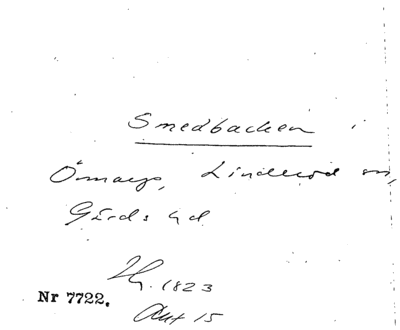 Smedbacken i
Önnarp, Linderöd sn,
Gärds hd
Hg. 1823
Nr 7722.
Akt 15